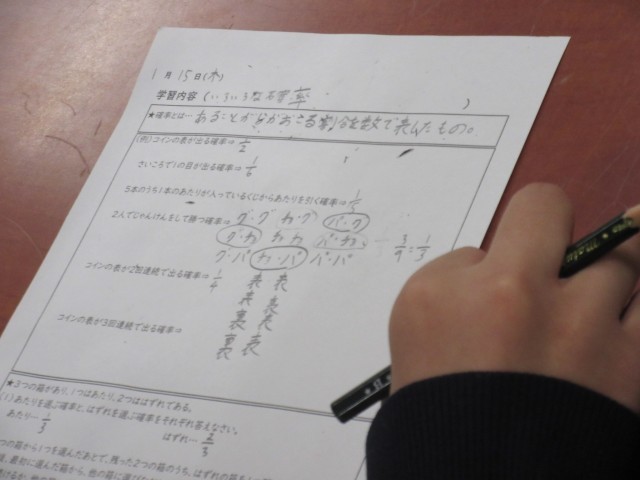 1月 15日(木)
学習内容 (いろいろな確率 )
★確率とは… あることがらがおこる割合を数で表したもの。
(例)コインの表が出る確率⇒ 1/2
さいころで1の目が出る確率⇒ 1/6
5本のうち1本のあたりが入っているくじからあたりを引く確率⇒ 1/5
2人でじゃんけんをして勝つ確率⇒ グ・グ カ・グ パ・グ
グ・カ カ・カ パ・カ 3/9=1/3
グ・パ カ・パ パ・パ
コインの表が2回連続で出る確率⇒ 1/4 表 表
表 裏
裏 表
コインの表が3回連続で出る確率⇒
裏 表
★3つの箱があり、1つはあたり、2つははずれである。
(1)あたりを選ぶ確率と、はずれを選ぶ確率をそれぞれ答えなさい。
あたり… 1/3 はずれ… 2/3
の箱から1つを選んだあとで、残った2つの箱のうち、はずれの箱を1
最初に選んだ箱から、他の箱に